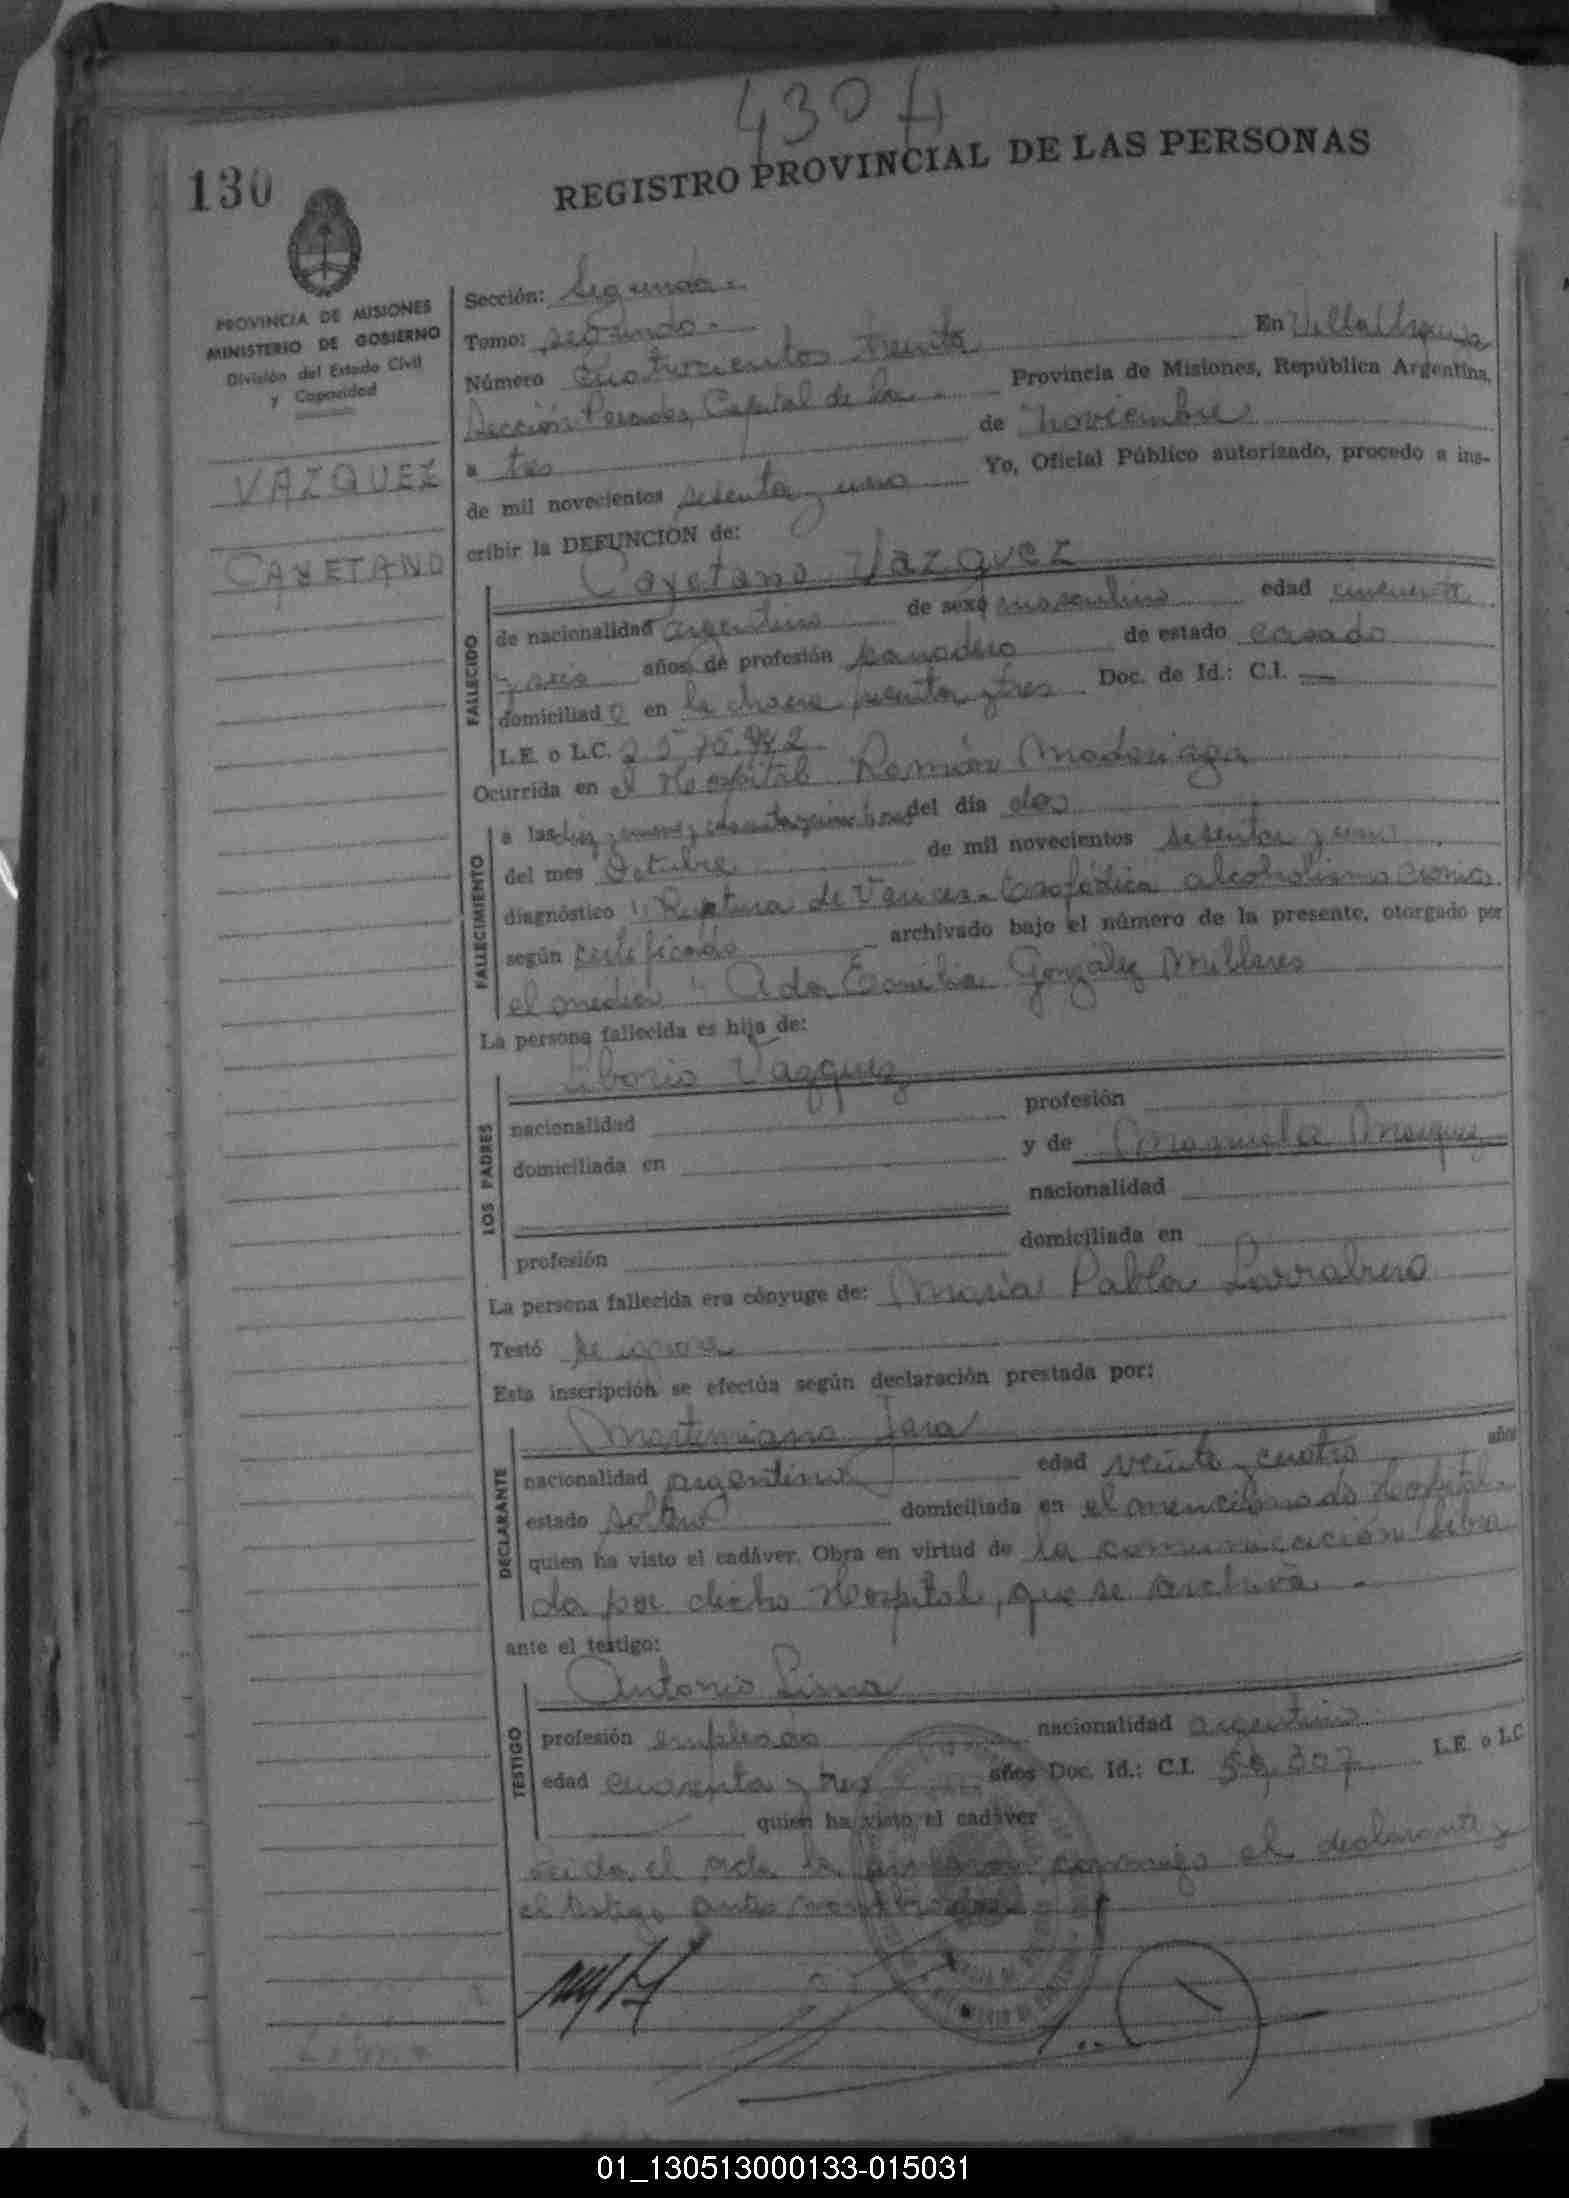 430 A
130
REGISTRO PROVINCIAL DE LAS PERSONAS
PROVINCIA DE MISIONES
MINISTERIO DE GOBIERNO
División del Estado Civil
y Capacidad
VAZQUEZ
CAYETANO
Sección: Segunda.-
Tomo: segundo.-
Número Cuatrocientos treinta En Villa Urquiza
Sección Posadas, Capital de la.- Provincia de Misiones, República Argentina,
a tres de noviembre
de mil novecientos sesenta y uno Yo, Oficial Público autorizado, procedo a ins-
cribir la DEFUNCION de:
Cayetano Vazquez
FALLECIDO
de nacionalidad argentino de sexo masculino edad cincuenta
y seis años, de profesión panadero de estado casado
domiciliado en la chacra sesenta y tres Doc. de Id.: C.I. —
L.E. o L.C.
Ocurrida en el Hospital Ramón Madariaga
FALLECIMIENTO
a las diez y nueve y cuarenta y cinco horas del día dos
del mes Octubre de mil novecientos sesenta y uno
diagnóstico: Ruptura de Varices alcoholismo cronico
según certificado archivado bajo el número de la presente, otorgado por
el medico: Ada Emilia González Millares
La persona fallecida es hija de:
LOS PADRES
Liborio Vazquez
nacionalidad profesión
domiciliada en y de Manuela
nacionalidad
profesión domiciliada en
La persona fallecida era cónyuge de: María Pabla
Testó se ignora
Esta inscripción se efectúa según declaración prestada por:
DECLARANTE
Martimiano Jara
nacionalidad argentino edad veinte y cuatro años
estado soltero domiciliada en el mencionado Hospital.
quien ha visto el cadáver. Obra en virtud de la comunicación libra
da por dicho Hospital, que se archiva.-
ante el testigo:
TESTIGO
Antonio Lima
profesión empleado nacionalidad argentino
edad cuarenta y tres años Doc. Id.: C.I. L.E. o L.C.
quien ha visto el cadáver
Leida el acta la firman conmigo el declarante y
el testigo antes nombrados
01_130513000133-015031